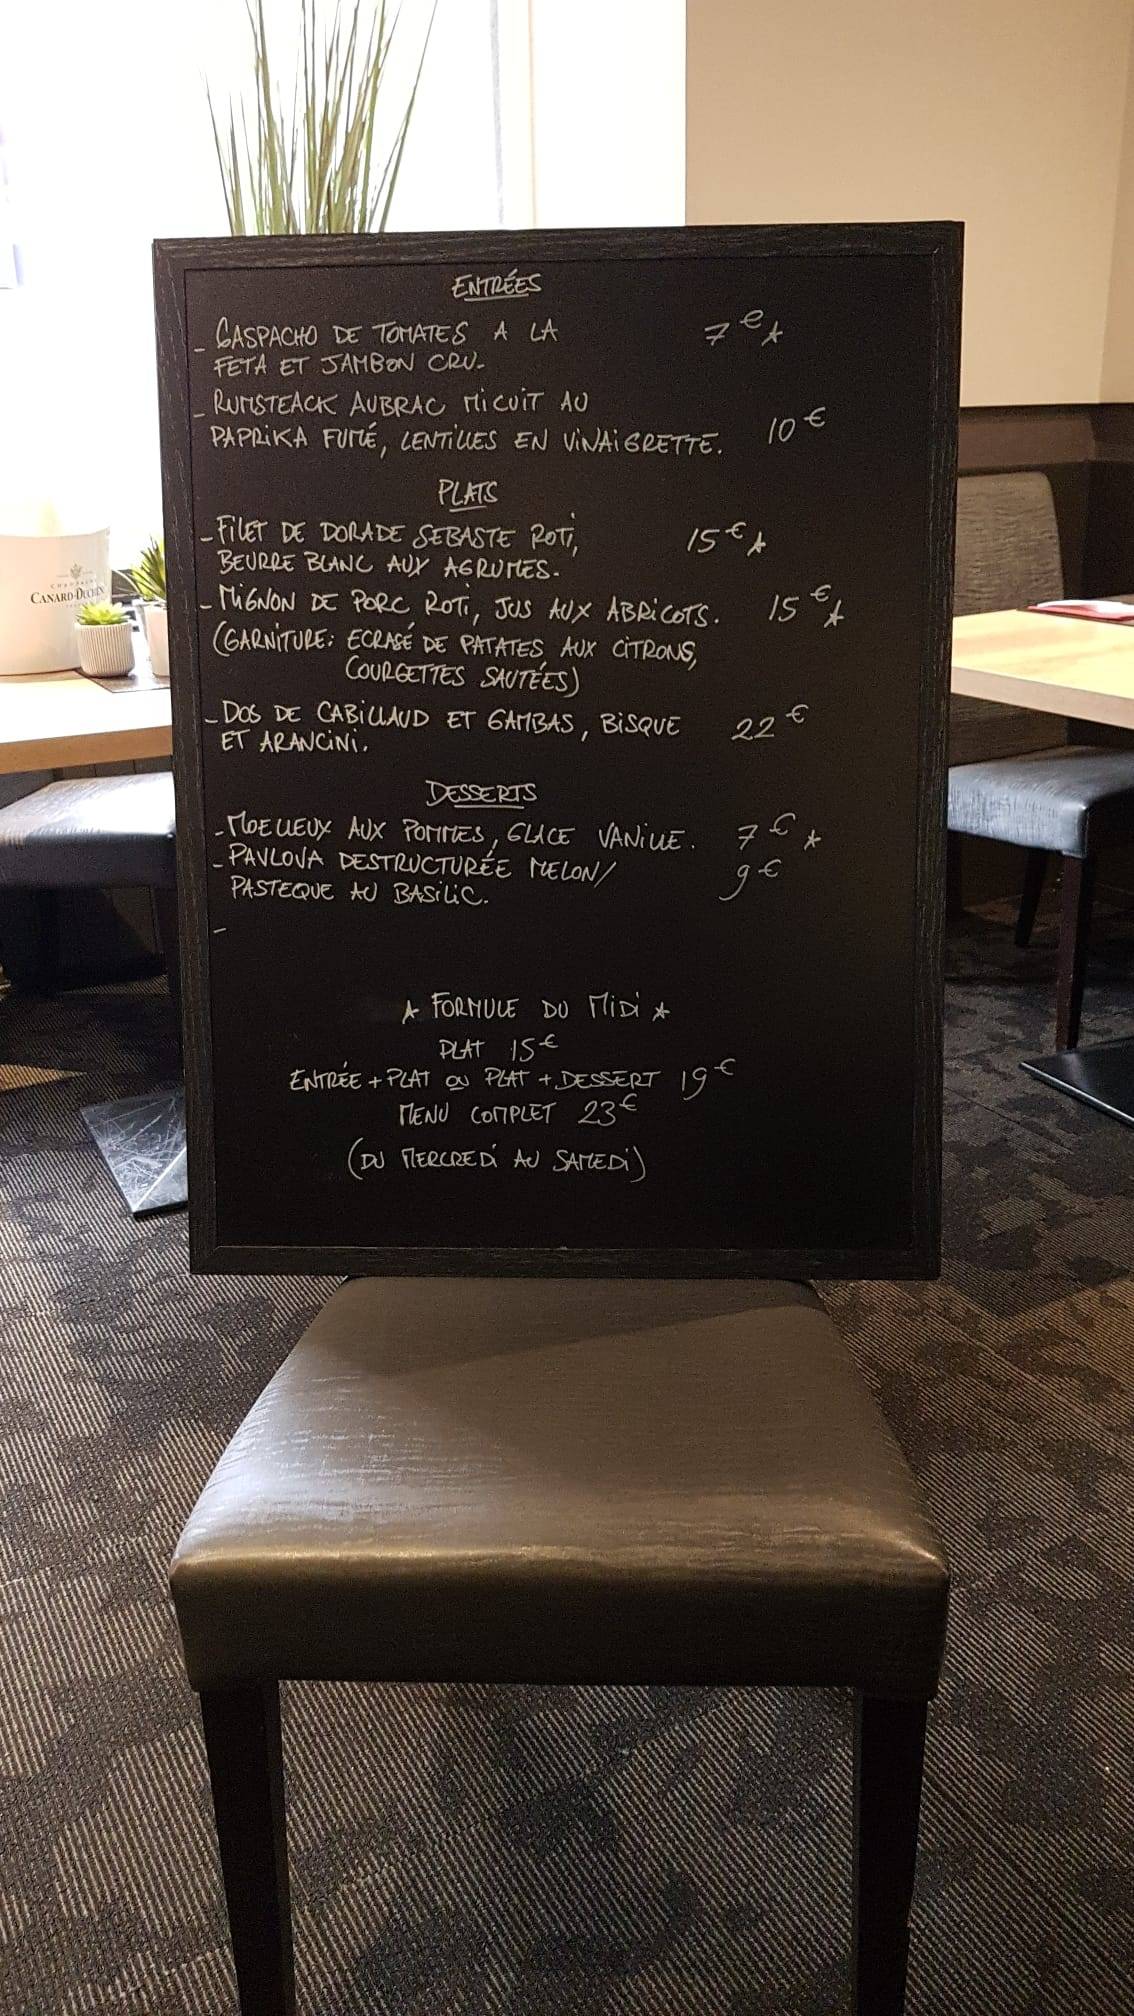 ENTRÉES
- GASPACHO DE TOMATES A LA 7€ ☆
FETA ET JAMBON CRU.
- RUMSTEACK AUBRAC MICUIT AU
PAPRIKA FUMÉ, LENTILLES EN VINAIGRETTE. 10€
PLATS
- FILET DE DORADE SEBASTE ROTI, 15€ ☆
BEURRE BLANC AUX AGRUMES.
- MIGNON DE PORC ROTI, JUS AUX ABRICOTS. 15€ ☆
(GARNITURE: ECRASÉ DE PATATES AUX CITRONS,
COURGETTES SAUTÉES)
- DOS DE CABILLAUD ET GAMBAS, BISQUE 22€
ET ARANCINI.
DESSERTS
- MOELLEUX AUX POMMES, GLACE VANILLE. 7€ ☆
- PAVLOVA DESTRUCTURÉE MELON/ 9€
PASTEQUE AU BASILIC.
-
☆ FORMULE DU MIDI ☆
PLAT 15€
ENTRÉE + PLAT OU PLAT + DESSERT 19€
MENU COMPLET 23€
(DU MERCREDI AU SAMEDI)
CANARD-DUCHÊN